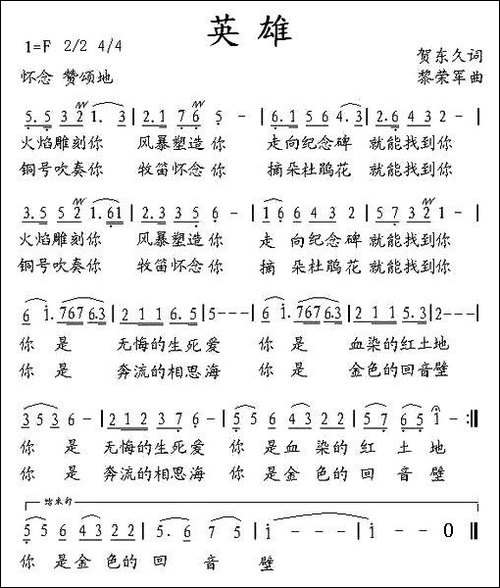 英雄
1=F 2/2 4/4
贺东久词
怀念 赞颂地
黎荣军曲
5. 5 3 2 1. 3 | 2. 1 7 6 5 - | 6. 1 5 6 4. 3 | 2. 6 4 3 2 - |
火焰雕刻你 风暴塑造你 走向纪念碑 就能找到你
铜号吹奏你 牧笛怀念你 摘朵杜鹃花 就能找到你
3. 5 5 2 1. 61 | 2. 3 3 5 6 - | 1 6 4 3 2 1 | 5 7 3 2 1 - |
火焰雕刻你 风暴塑造你 走 向纪念碑 就能找到你
铜号吹奏你 牧笛怀念你 摘 朵杜鹃花 就能找到你
6 1. 767 6.3 | 2 1 1 6. 5 | 5 - - - | 6 1. 767 6.3 | 2 1 1 2 5. 3 | 2 - - - |
你 是 无悔的生死爱 你 是 血染的红土地
你 是 奔流的相思海 你 是 金色的回音壁
3 5 3 6 - | 2 1 2 3 7 6 - | 5 5 6 4 3 2 2 | 5 7 6 5 1 - :||
你 是 无悔的生死爱 你 是血 染的 红 土 地
你 是 奔流的相思海 你 是金 色的 回 音 壁
结束句
5 5 6 4 3 2 2 | 5. 6 7 5 | 1 - - - | 1 - 0 ||
你 是金 色的 回 音 壁